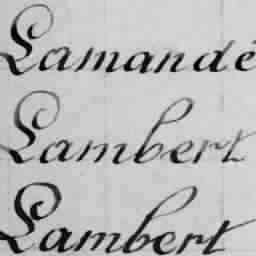 Lamandé
Lambert
Lambert